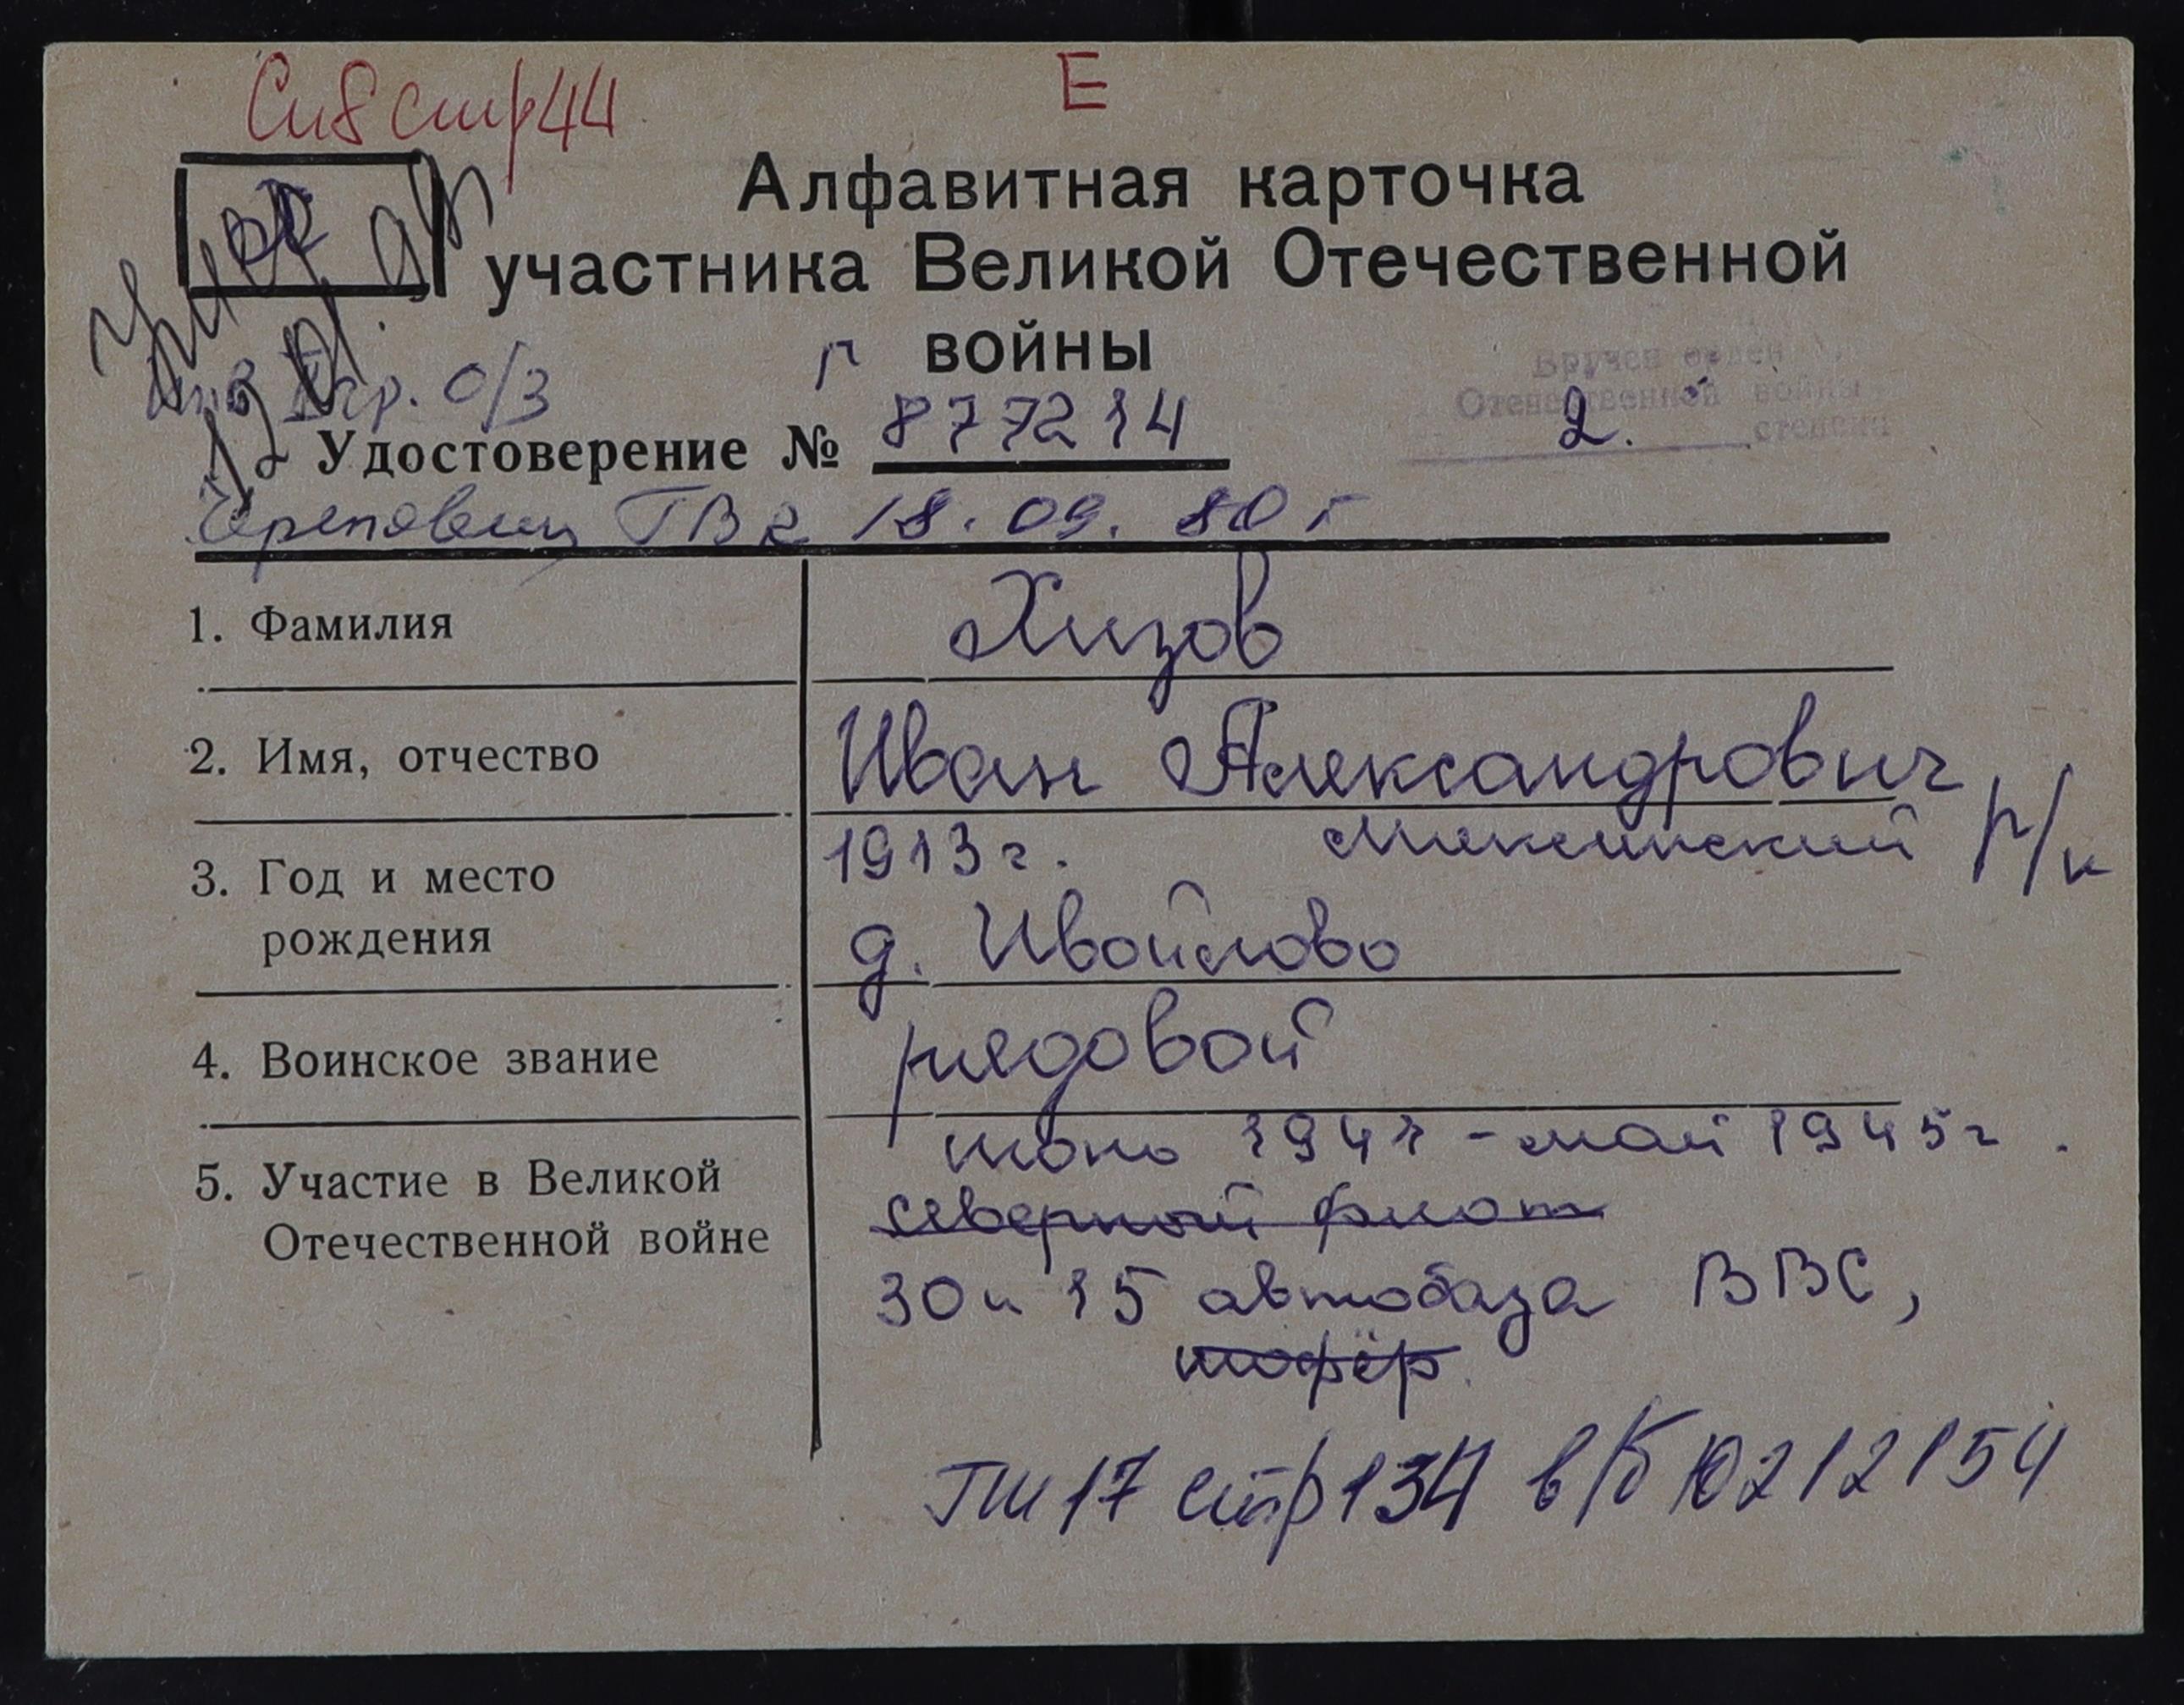 Сп8 стр44
Е
Алфавитная карточка
участника Великой Отечественной
войны
Умер
О/З
Г
Вручен орден
Отечественной войны
2. степени
Удостоверение № 877214
Череповец ГВК 18.09.80 г
1. Фамилия
Хизов
2. Имя, отчество
Иван Александрович
3. Год и место
рождения
1913г. Мяксинский р/н
д. Ивойлово
4. Воинское звание
рядовой
5. Участие в Великой
Отечественной войне
июнь 1941 - май 1945г.
северный флот
30 и 15 автобаза ВВС,
шофёр.
ТШ17 стр134 в/к 10212154